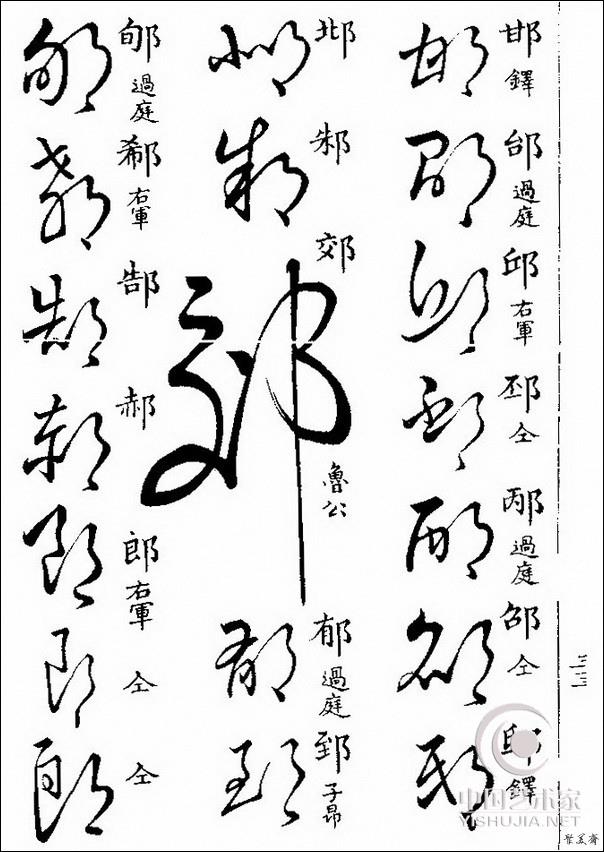 邯 鐸
邰 過庭
邱 右軍
邳 仝
邴 過庭
邵 仝
邸 鐸
邶
邾
郊 魯公
郁 過庭
郅 子昂
郇 過庭
郗 右軍
郜
郝
郎 右軍
仝
仝
中国艺术家
YISHUJIA.NET